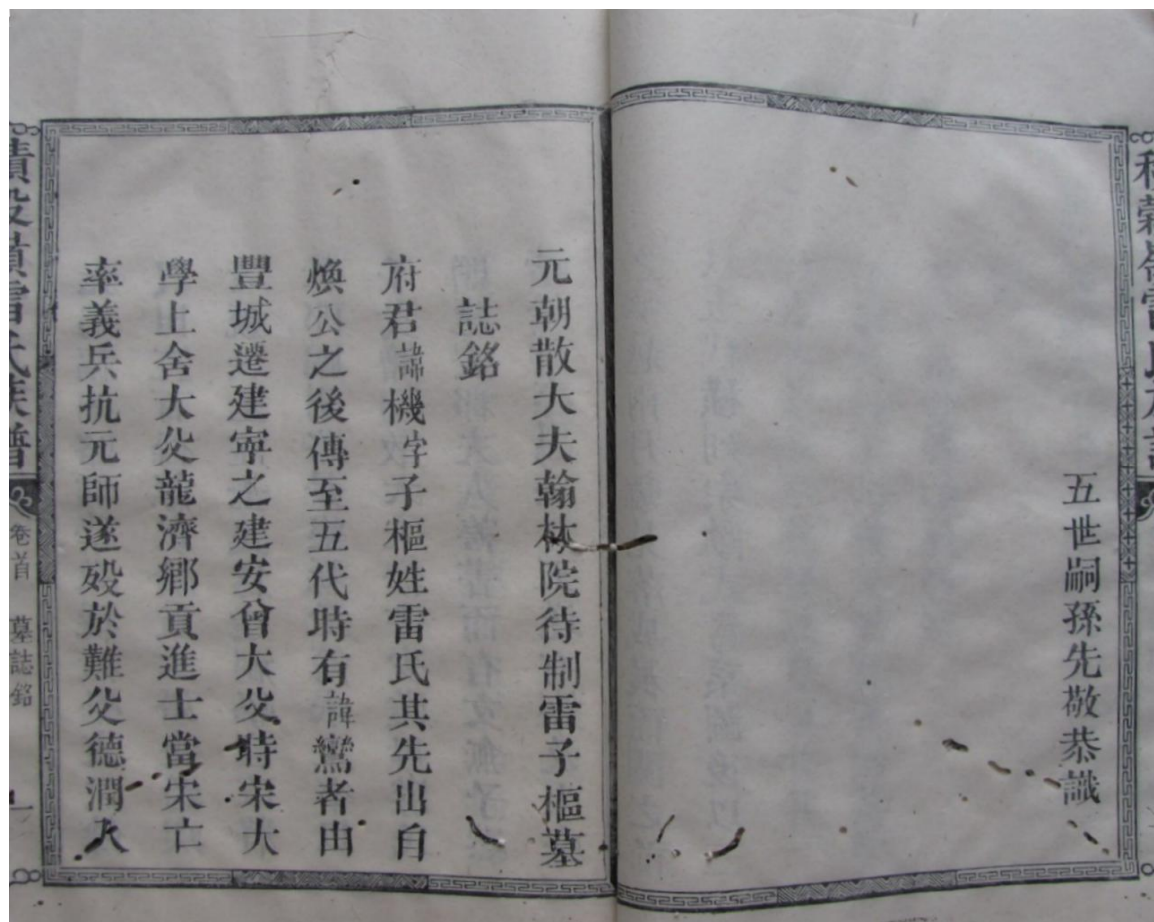 五世嗣孫先敬恭識
元朝散大夫翰林院待制雷子樞墓
誌銘
府君諱機字子樞姓雷氏其先出自
煥公之後傳至五代時有諱鸞者由
豐城遷建寧之建安曾大父時宋大
學上舍大父龍濟鄉貢進士當宋亡
率義兵抗元師遂歿於難父德潤入
積穀嶺雷氏族譜
卷首 墓誌銘
一